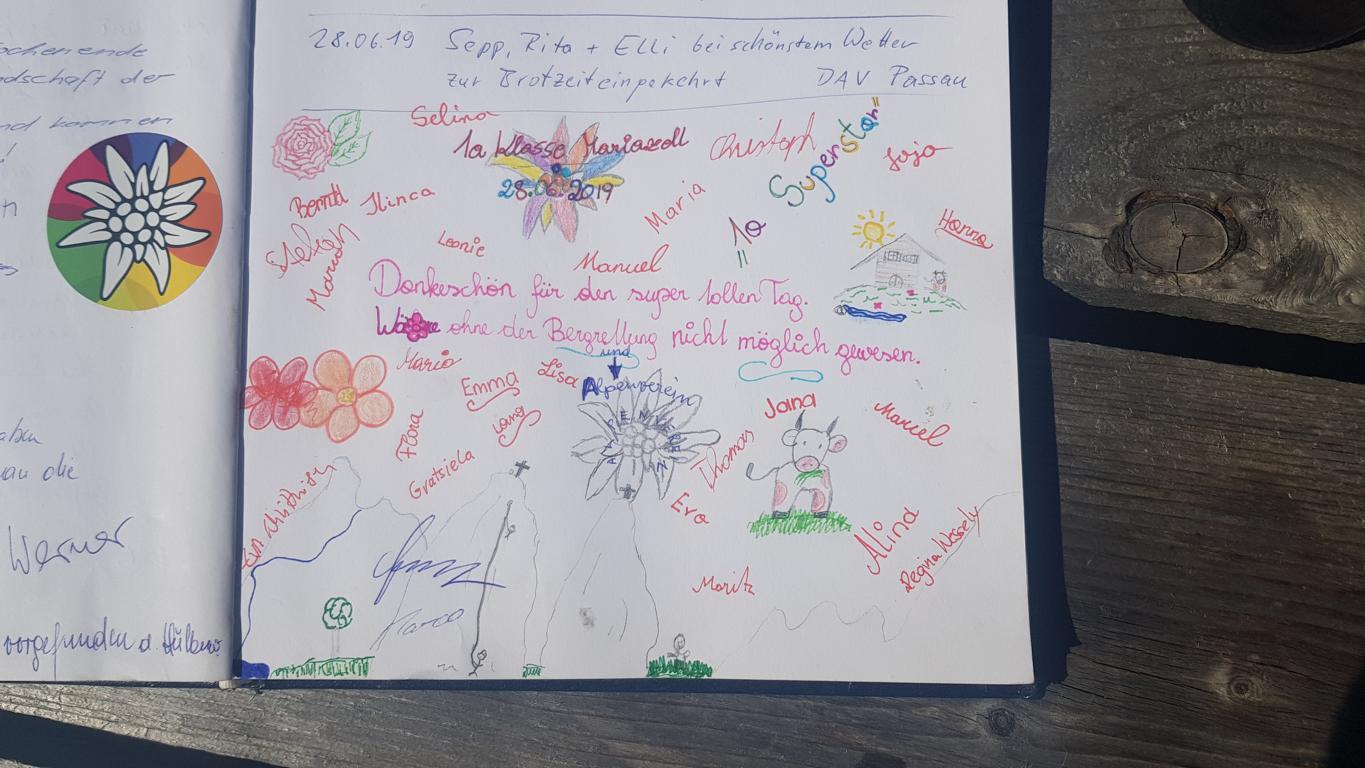 ochenende
dschaft der
nd kommen
aben
au die
Werner
vorgefunden
28.06.19 Sepp, Rita + Elli bei schönstem Wetter
zur Brotzeit eingekehrt DAV Passau
Selina
1a Klasse Mariazell
28.06.2019
Christoph
"Superstar"
Jojo
Berndt
Ilinca
Maria
1a
Hanna
Stefan
Marvah
Leonie
Manuel
Dankeschön für den super tollen Tag.
Wäre ohne der Bergrettung nicht möglich gewesen.
und
Alpenverein
Mario
Emma
Lisa
Flora
Lang
ALPENVEREIN
Jana
Marcel
Gratsiela
Thomas
Eva
Alina
Regina Wessely
Moritz
Marco